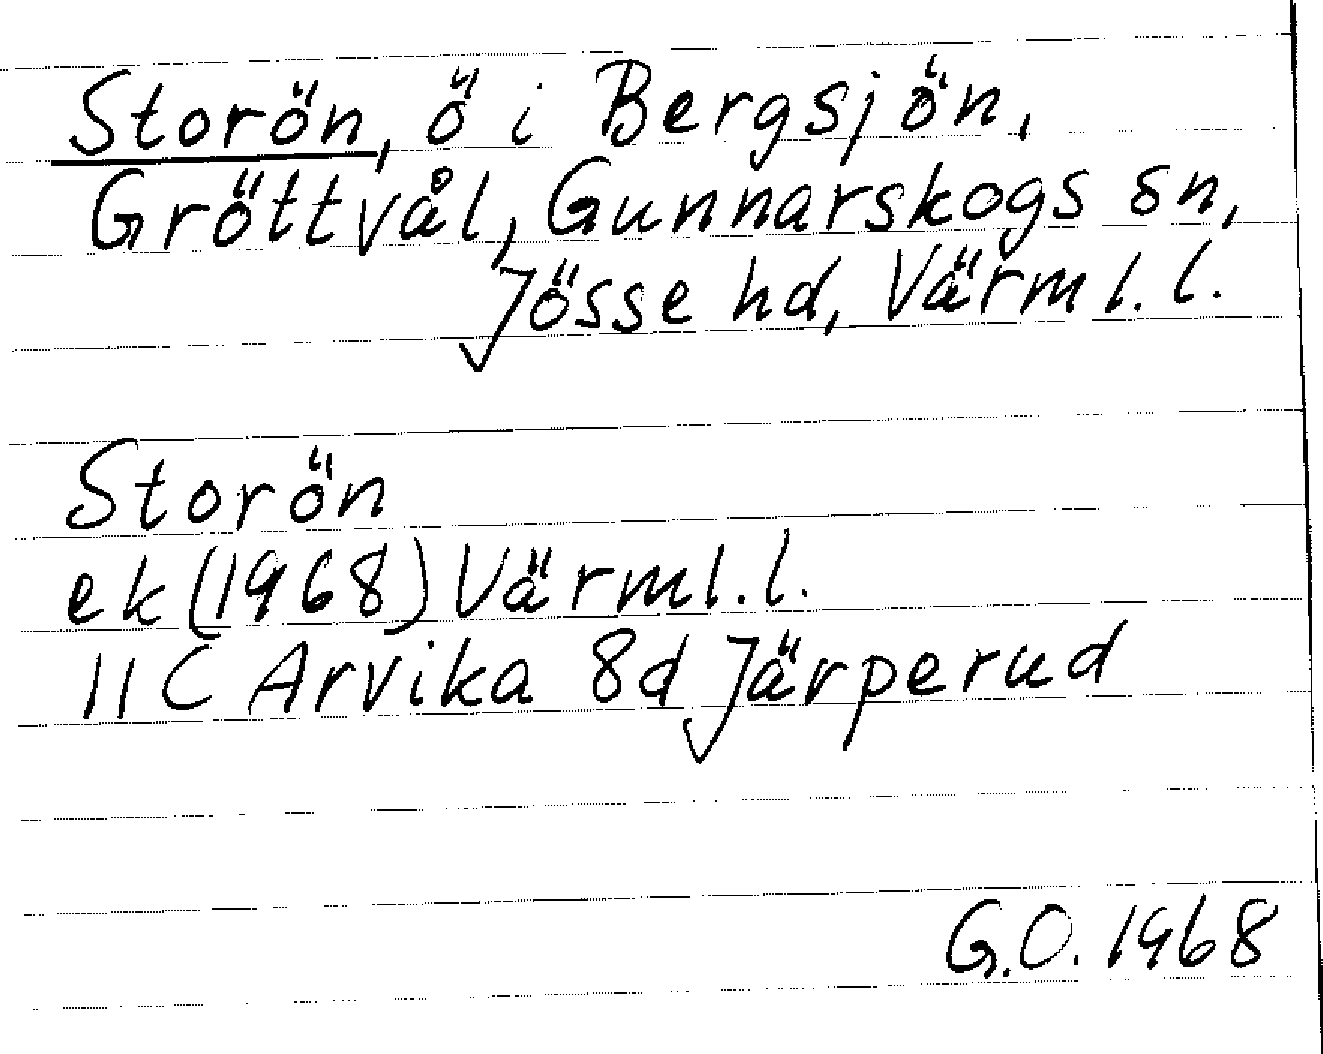 Storön, ö i Bergsjön,
Gröttvål, Gunnarskogs sn,
Jösse hd, Värml. l.
Storön
ek (1968) Värml. l.
11C Arvika 8d Järperud
G.O. 1968